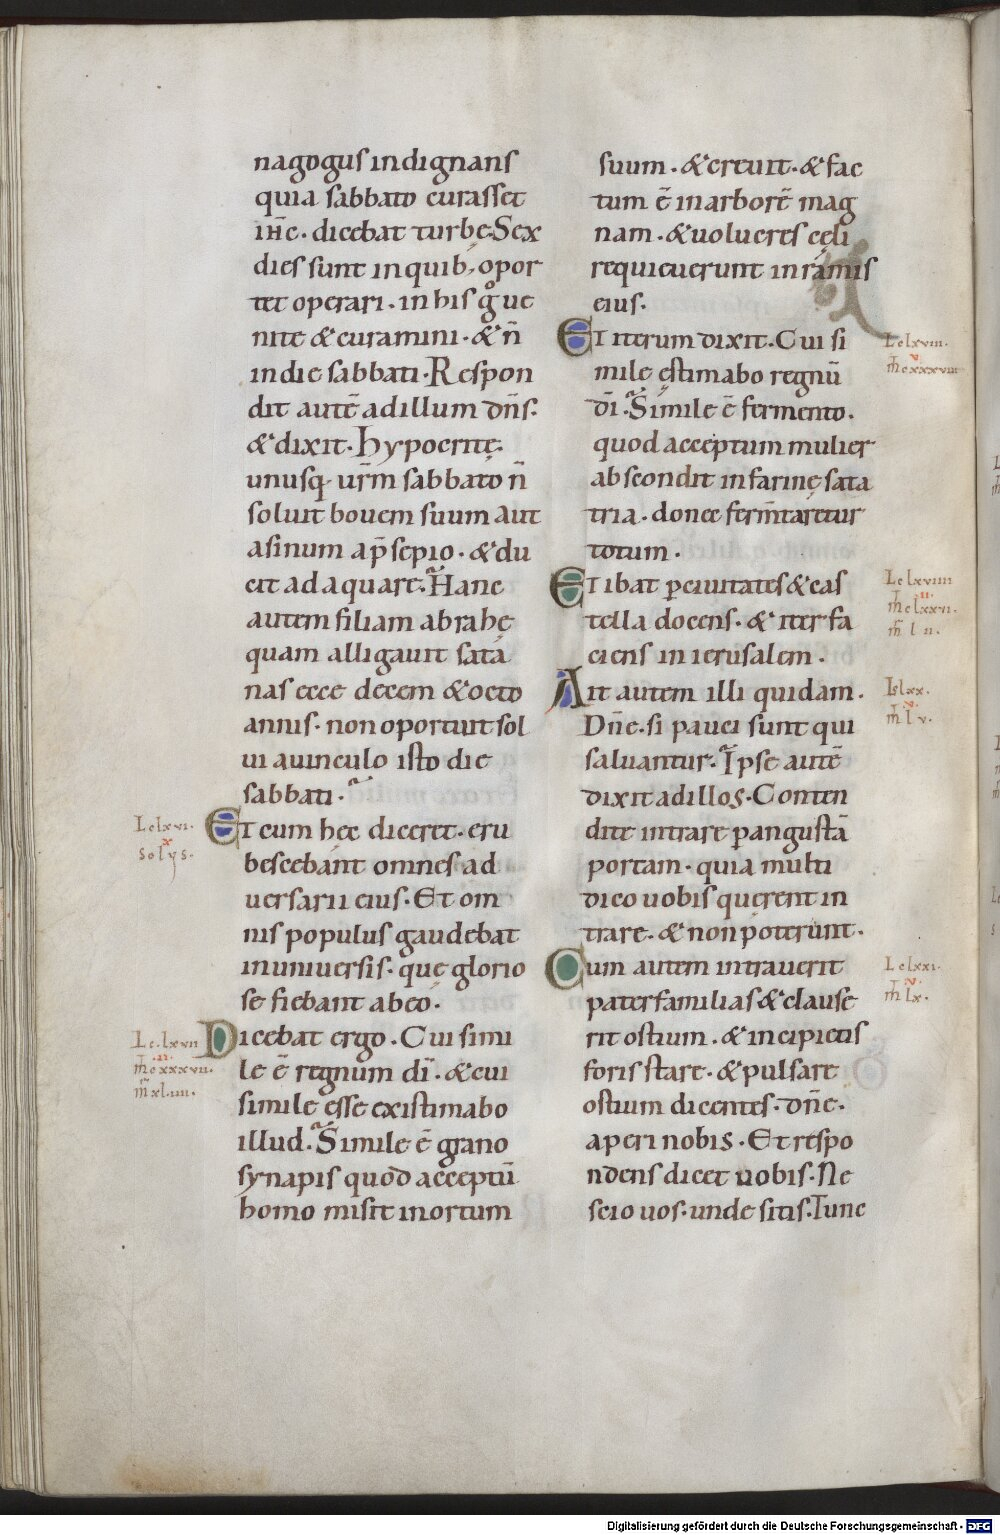 nagogus indignans
quia sabbato curasset
ihc̄. dicebat turbę. Sex
dies sunt in quib; opor
tet operari. in his gͦ ue
nite & curamini. & n̄
in die sabbati. Respon
dit autē ad illum dn̄s.
& dixit. hypocritę.
unusq; ur̄m sabbato n̄
soluit bouem suum aut
asinum a p̄sepio. & du
cit adaquare. Hanc
autem filiam abrahę
quam alligauit sata
nas ecce decem & octo
annis. non oportuit sol
ui a uinculo isto die
sabbati.
Lc lxvi.
x
solus.
Et cum hęc diceret. eru
bescebant omnes ad
uersarii eius. Et om
nis populus gaudebat
in uniuersis. quę glorio
se fiebant ab eo.
Lc. lxvii
ii.
m̄ cxxxvii.
m̄ xliiii.
Dicebat ergo. Cui simi
le ē regnum dī. & cui
simile esse existimabo
illud. Simile ē grano
synapis quod acceptū
homo misit in ortum
suum. & creuit. & fac
tum ē in arborē mag
nam. & uolucres cęli
requieuerunt in ramis
eius.
Lc lxviii.
v
m̄ cxxxviii
Et iterum dixit. Cui si
mile ęstimabo regnū
dī. Simile ē fermento.
quod acceptum mulier
abscondit in farinę sata
tria. donec ferm̄taretur
totum.
Lc lxviiii
ii.
m̄ clxxvi.
m̄ l ii.
Et ibat p̱ ciuitates & cas
tella docens. & iter fa
ciens in ierusalem.
Ls lxx.
v.
m̄ l v.
Ait autem illi quidam.
Dn̄e. si pauci sunt qui
saluantur. Ipse autē
dixit ad illos. Conten
dite intrare p̱ angustā
portam. quia multi
dico uobis querent in
trare. & non poterunt.
Lc lxxi.
v.
m̄ lx.
Cum autem intrauerit
paterfamilias & clause
rit ostium. & incipietis
foris stare. & pulsare
ostium dicentes. dn̄e.
aperi nobis. Et respo
ndens dicet uobis. Ne
scio uos. unde sitis. Tunc
Digitalisierung gefördert durch die Deutsche Forschungsgemeinschaft - DFG